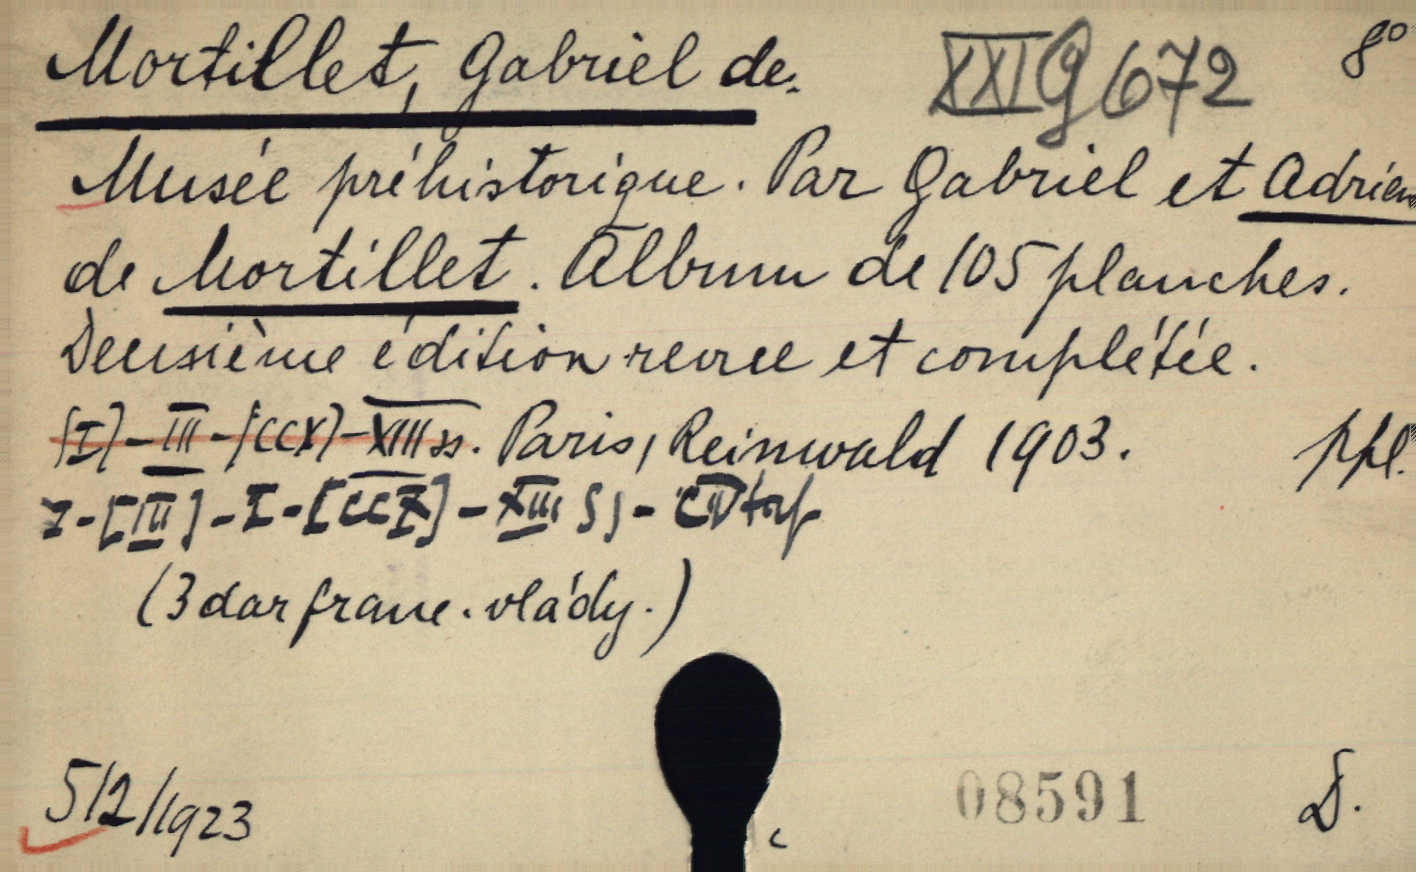 Mortillet, Gabriel de. XXI G 672 8°
Musée préhistorique. Par Gabriel et Adrien
de Mortillet. Album de 105 planches.
Deusième édition revue et complétée.
[I]-III-[CCX]-XIII ss. Paris, Reinwald 1903. ppl.
I-[III]-I-[CCX]-XIII SS-CV
(3 dar franc. vlády.)
5/2/1923 08591 D.